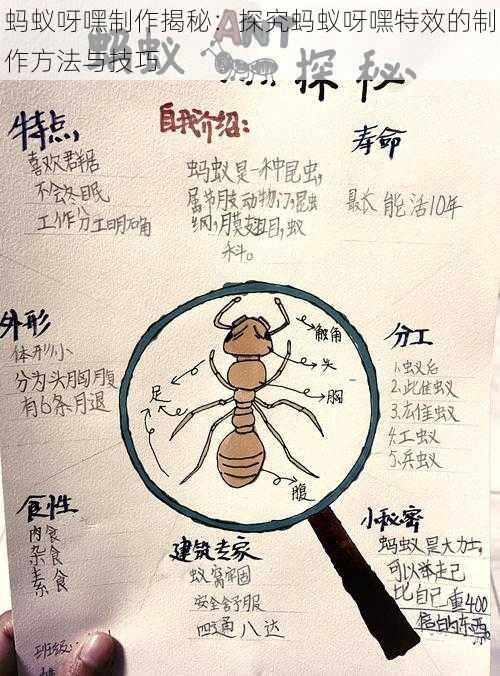 蚂蚁呀嘿制作揭秘：探究蚂蚁呀嘿特效的制
作方法与技巧
蚂蚁 ANT 探秘
特点
喜欢群居
不会冬眠
工作分工明确
自我介绍:
蚂蚁是一种昆虫,
属节肢动物门,昆虫
纲,膜翅目,蚁
科。
寿命
最长能活10年
外形
体形小
分为头胸腹
有6条月退
触角
头
胸
足
腹
分工
1.蚁后
2.此佳蚁
3.右佳蚁
4.工蚁
5.兵蚁
食性
肉食
杂食
素食
建筑专家
蚁窝牢固
安全舒服
四通八达
小秘密
蚂蚁是大力士,
可以举走己
比自己重400
倍的东西
班级: